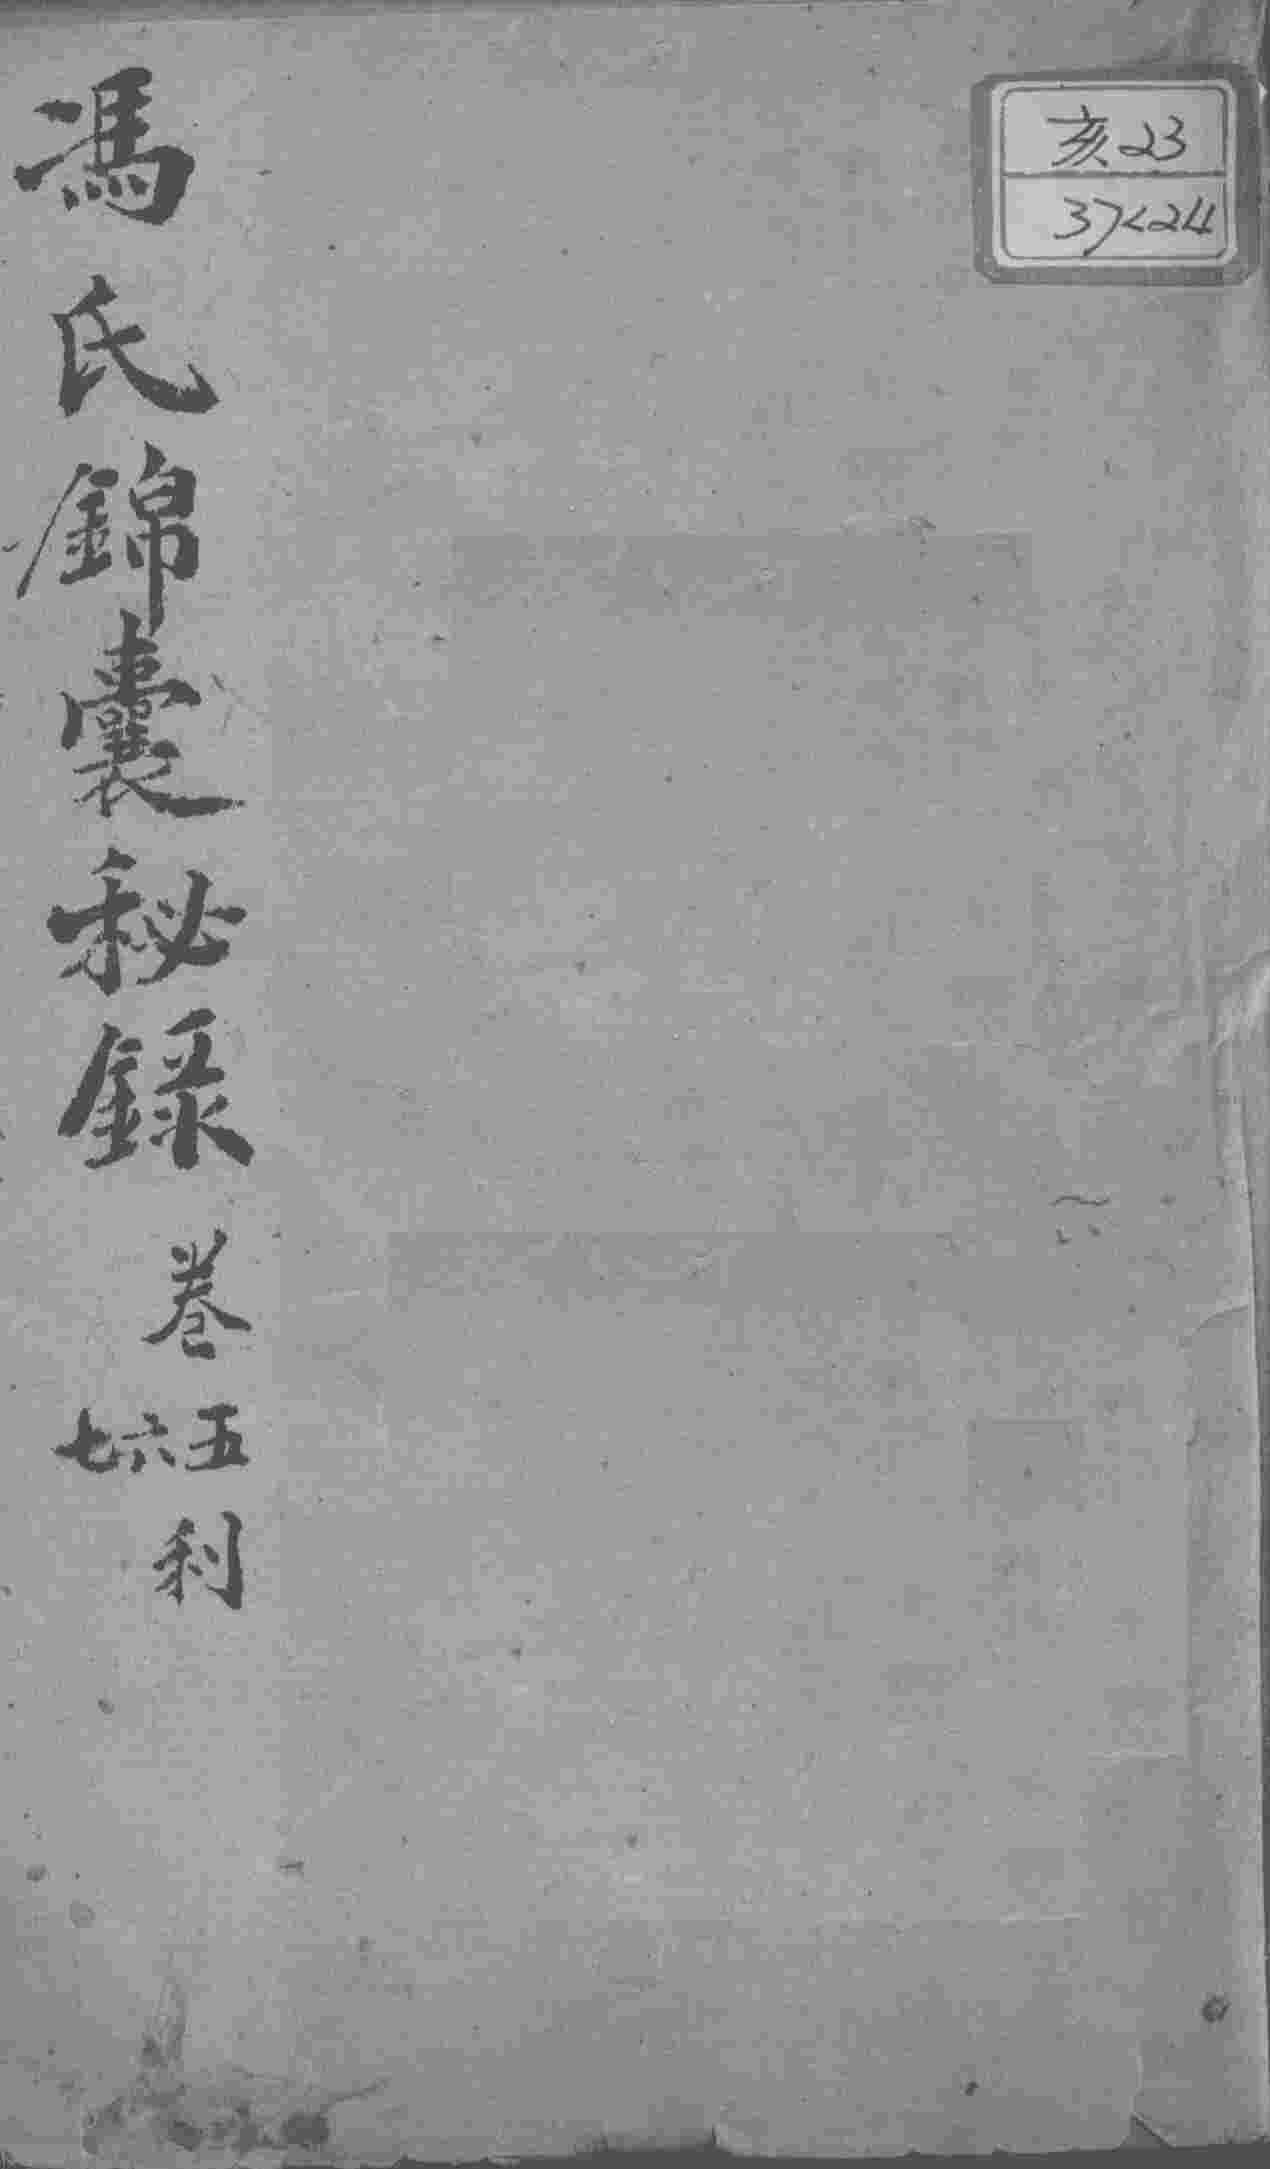 亥23
37<24
馮氏錦囊秘錄
卷
五六七
利